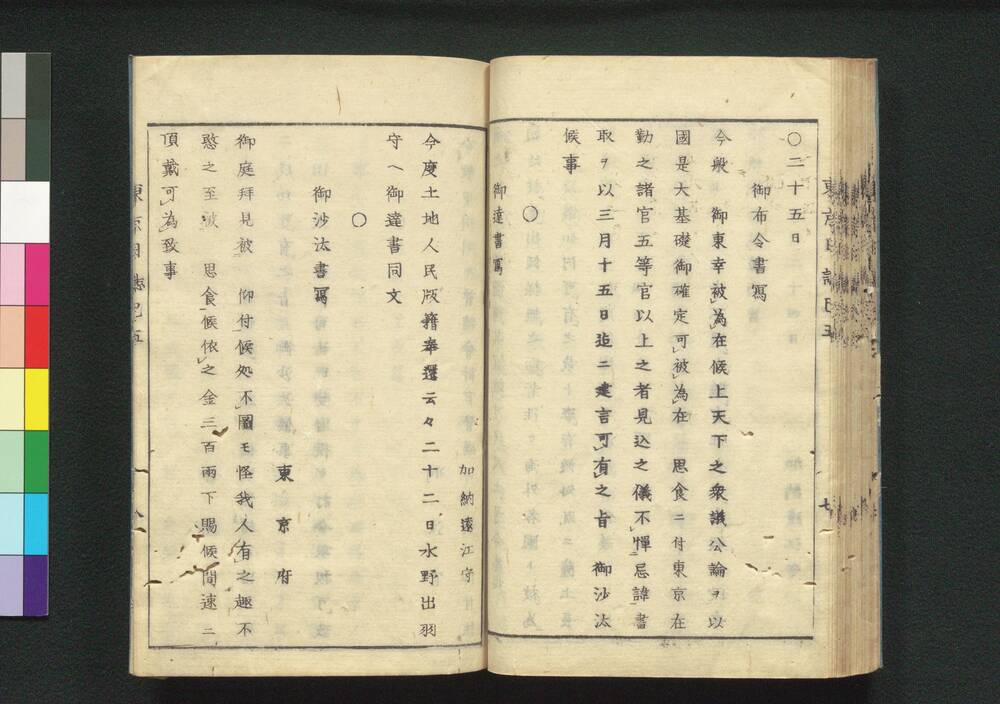 〇二十五日
御布令書寫
今般　御東幸被為在候上天下之衆議公論ヲ以
國是大基礎御確定可被為在　思食ニ付東京在
勤之諸官五等官以上之者見込之儀不憚忌諱書
取ヲ以三月十五日迄ニ建言可有之旨　御沙汰
候事
〇
御達書寫
加納遠江守
今度土地人民版籍奉還云々二十二日水野出羽
守ヘ御達書同文
〇
御沙汰書寫
東京府
御庭拜見被　仰付候処不圖モ怪我人有之趣不
憨之至被　思食候依之金三百両下賜候間速ニ
頂戴可為致事
東京日誌己五
七
東京日誌己五
八